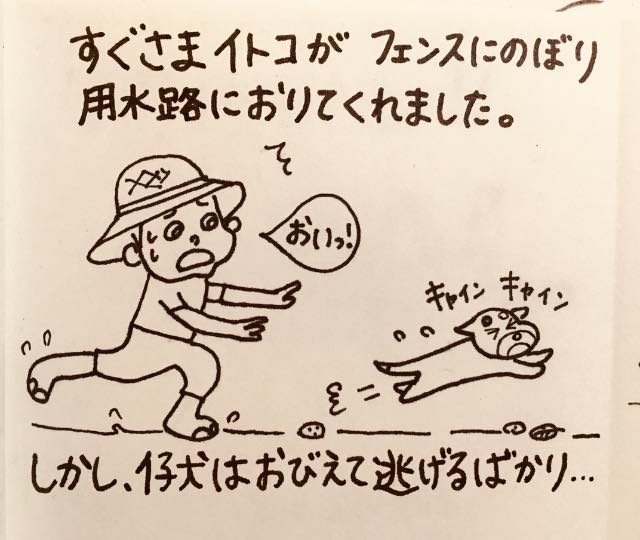 すぐさまイトコが フェンスにのぼり
用水路におりてくれました。
おいっ!
キャイン キャイン
しかし、仔犬はおびえて逃げるばかり…